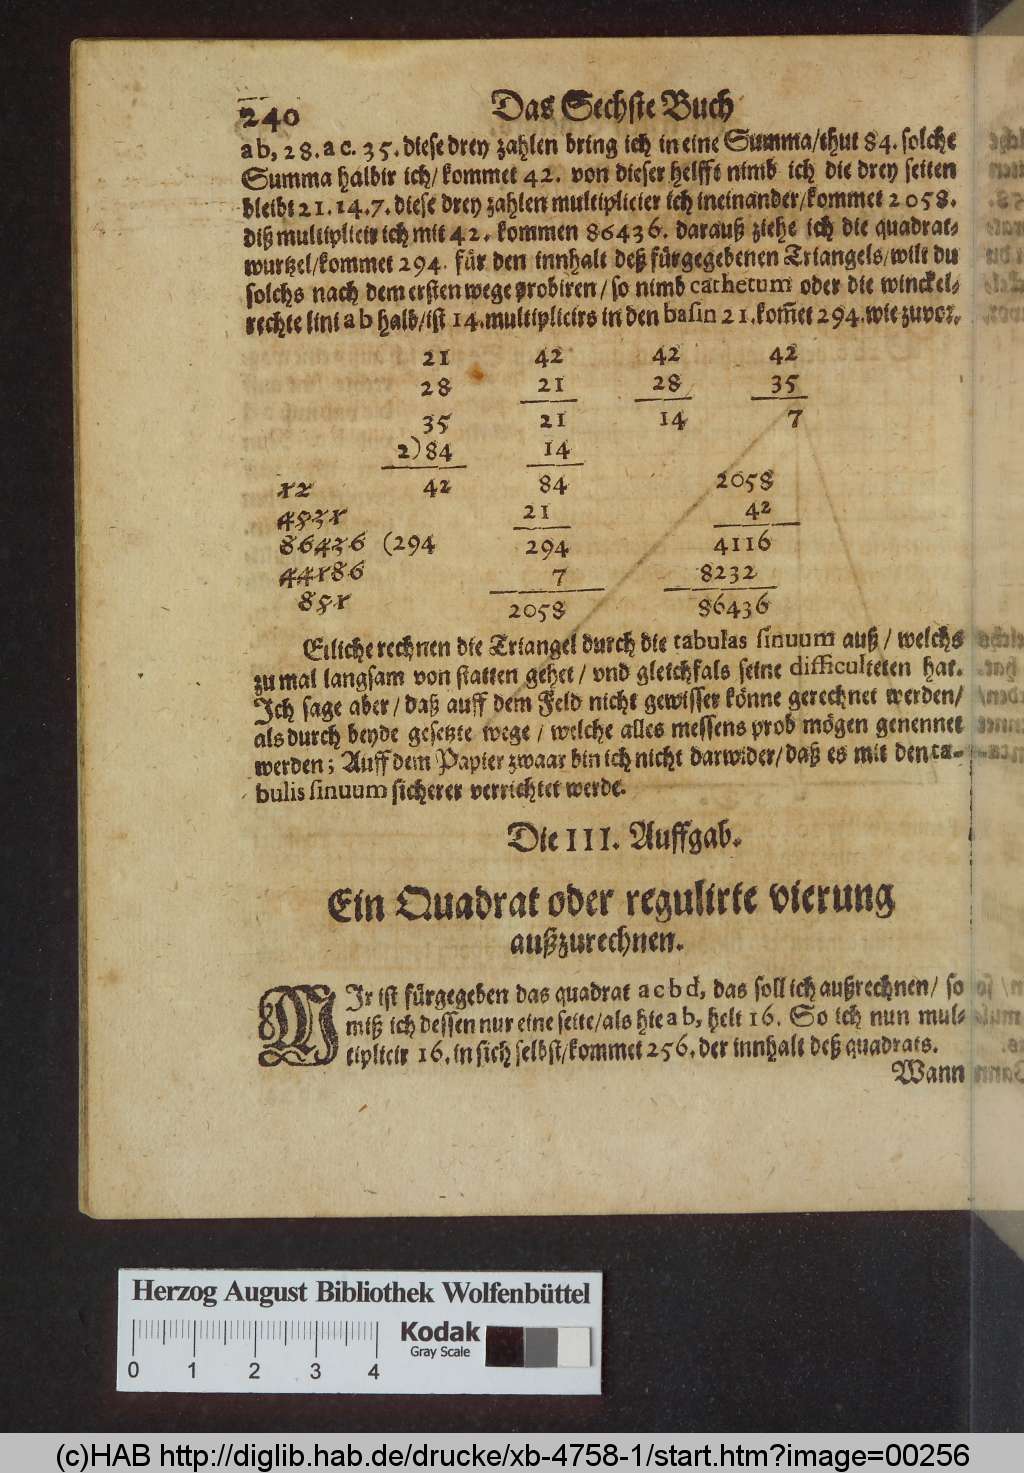 240 Das Sechste Buch
ab, 28. ac. 35. diese drey zahlen bring ich in eine Summa/thut 84. solche
Summa halbir ich/ kommet 42. von dieser helfft nimb ich die drey seiten
bleibt 21. 14. 7. diese drey zahlen multiplicier ich ineinander/kommet 2058.
diß multiplicir ich mit 42. kommen 86436. darauß ziehe ich die quadrat-
wurtzel/kommet 294. für den innhalt deß fürgegebenen Triangels/wilt du
solchs nach dem ersten wege probiren/ so nimb cathetum oder die winckel-
rechte lini ab halb/ist 14. multiplicirs in den basin 21. kom̃et 294. wie zuvor.
21 42 42 42
28 21 28 35
35 21 14 7
2)84 14
12 42 84 2058
4531 21 42
86436 (294 294 4116
44186 7 8232
851 2058 86436
Etliche rechnen die Triangel durch die tabulas sinuum auß/ welchs
zu mal langsam von statten gehet/ vnd gleichfals seine difficulteten hat.
Ich sage aber/ daß auff dem Feld nicht gewisser könne gerechnet werden/
als durch beyde gesetzte wege/ welche alles messens prob mögen genennet
werden; Auff dem Papier zwaar bin ich nicht darwider/daß es mit den ta-
bulis sinuum sicherer verrichtet werde.
Die III. Auffgab.
Ein Quadrat oder regulirte vierung
außzurechnen.
MIr ist fürgegeben das quadrat acbd, das soll ich außrechnen/ so
miß ich dessen nur eine seite/als hie ab, helt 16. So ich nun mul-
tiplicir 16. in sich selbst/kommet 256. der innhalt deß quadrats.
Wann
Herzog August Bibliothek Wolfenbüttel
Kodak
Gray Scale
0 1 2 3 4
(c)HAB http://diglib.hab.de/drucke/xb-4758-1/start.htm?image=00256